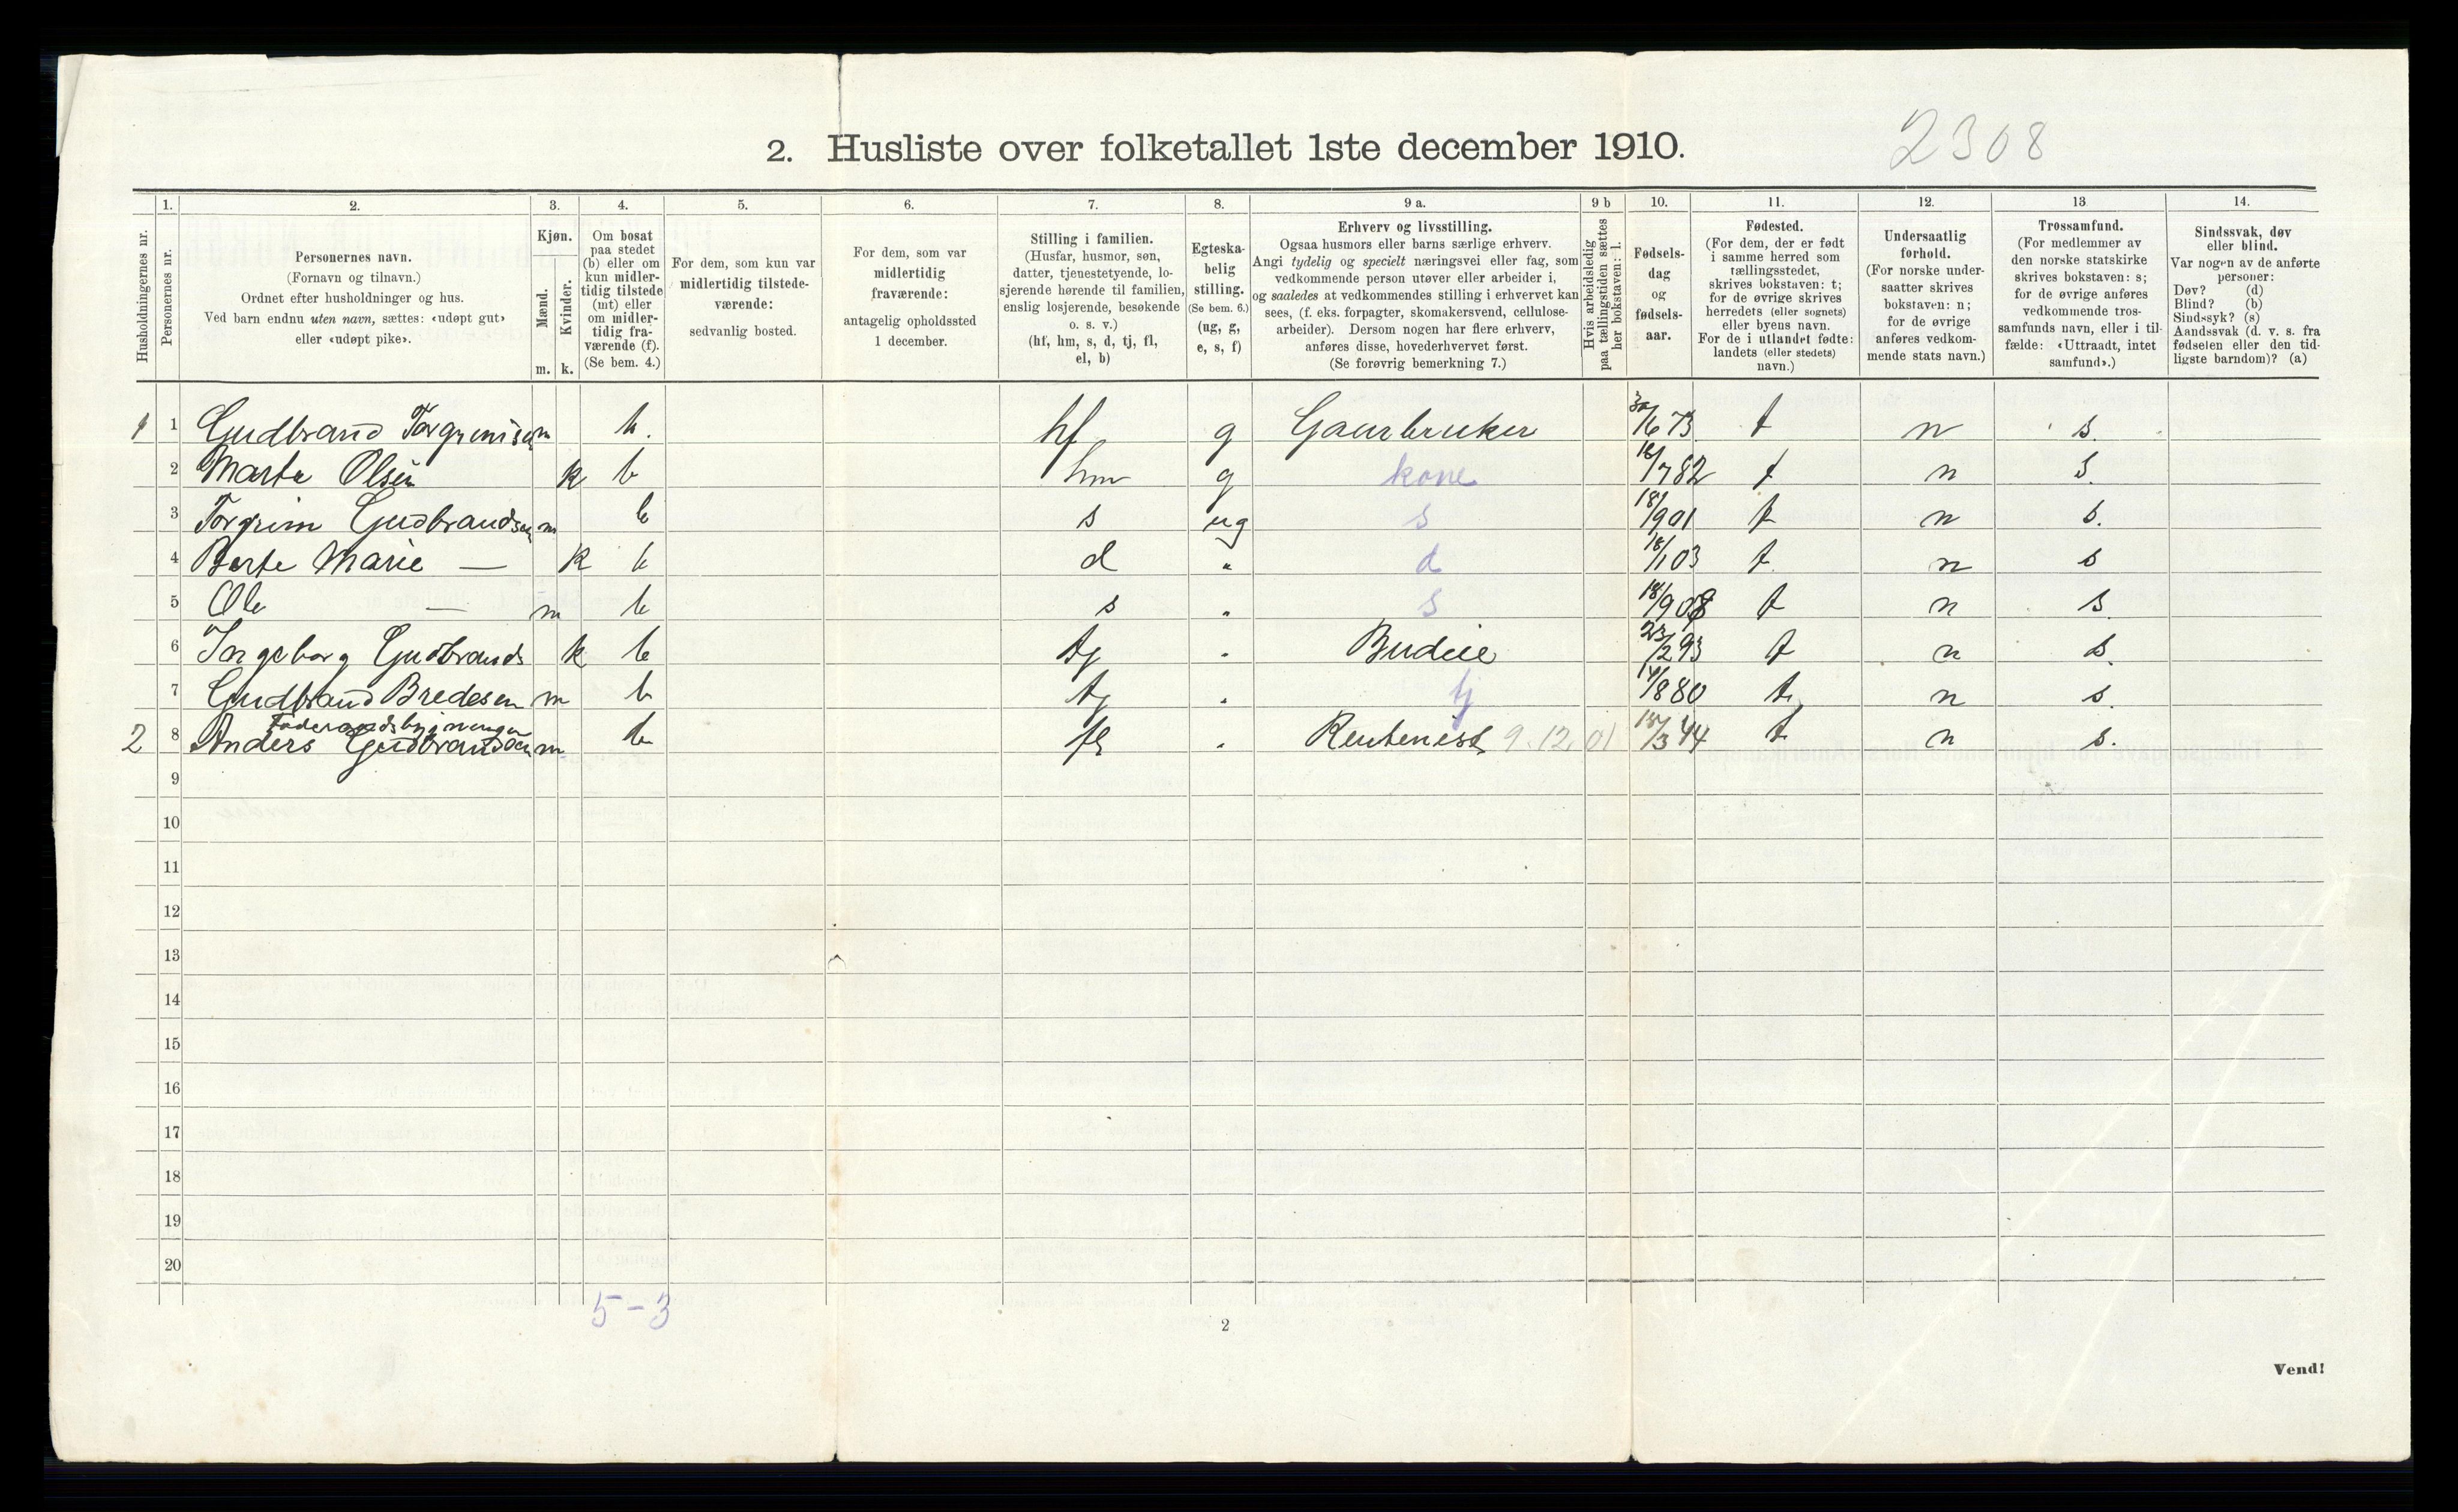 2308
2. Husliste over folketallet 1ste december 1910.
1. 2. 3. 4. 5. 6. 7. 8. 9 a. 9 b 10. 11. 12. 13. 14.
Husholdningernes nr.
Personernes nr.
Personernes navn.
(Fornavn og tilnavn.)
Ordnet efter husholdninger og hus.
Ved barn endnu uten navn, sættes: «udøpt gut»
eller «udøpt pike».
Kjøn.
Mænd.
Kvinder.
m. k.
Om bosat
paa stedet
(b) eller om
kun midler-
tidig tilstede
(mt) eller
om midler-
tidig fra-
værende (f).
(Se bem. 4.)
For dem, som kun var
midlertidig tilstede-
værende:
sedvanlig bosted.
For dem, som var
midlertidig
fraværende:
antagelig opholdssted
1 december.
Stilling i familien.
(Husfar, husmor, søn,
datter, tjenestetyende, lo-
sjerende hørende til familien,
enslig losjerende, besøkende
o. s. v.)
(hf, hm, s, d, tj, fl,
el, b)
Egteska-
belig
stilling.
(Se bem. 6.)
(ug, g,
e, s, f)
Erhverv og livsstilling.
Ogsaa husmors eller barns særlige erhverv.
Angi tydelig og specielt næringsvei eller fag, som
vedkommende person utøver eller arbeider i,
og saaledes at vedkommendes stilling i erhvervet kan
sees, (f. eks. forpagter, skomakersvend, cellulose-
arbeider). Dersom nogen har flere erhverv,
anføres disse, hovederhvervet først.
(Se forøvrig bemerkning 7.)
Hvis arbeidsledig
paa tællingstiden sættes
her bokstaven: l.
Fødsels-
dag
og
fødsels-
aar.
Fødested.
(For dem, der er født
i samme herred som
tællingsstedet,
skrives bokstaven: t;
for de øvrige skrives
herredets (eller sognets)
eller byens navn.
For de i utlandet fødte:
landets (eller stedets)
navn.)
Undersaatlig
forhold.
(For norske under-
saatter skrives
bokstaven: n;
for de øvrige
anføres vedkom-
mende stats navn.)
Trossamfund.
(For medlemmer av
den norske statskirke
skrives bokstaven: s;
for de øvrige anføres
vedkommende tros-
samfunds navn, eller i til-
fælde: «Uttraadt, intet
samfund».)
Sindssvak, døv
eller blind.
Var nogen av de anførte
personer:
Døv? (d)
Blind? (b)
Sindssyk? (s)
Aandssvak (d. v. s. fra
fødselen eller den tid-
ligste barndom)? (a)
1 1 Gudbrand Torgrimsen m b. hf g Gaardbruker 30/6 73 t n s.
2 Marte Olsen k b hm g kone 16/7 82 t n s.
3 Torgrim Gudbrandsen m b s ug s 18/9 01 t n s.
4 Berte Marie — k b d " d 18/1 03 t n s
5 Ole — m b s " s 18/9 08 t n s
6 Ingeborg Gudbrands k b tj " Budeie 23/2 93 t n s.
7 Gudbrand Bredesen m b tj " tj 14/8 80 t n s.
Føderaadsbygningen
2 8 Anders Gudbrandsen m b fl " Rentenist 9.12.01 15/3 44 t n s.
9
10
11
12
13
14
15
16
17
18
19
20
5-3
2
Vend!